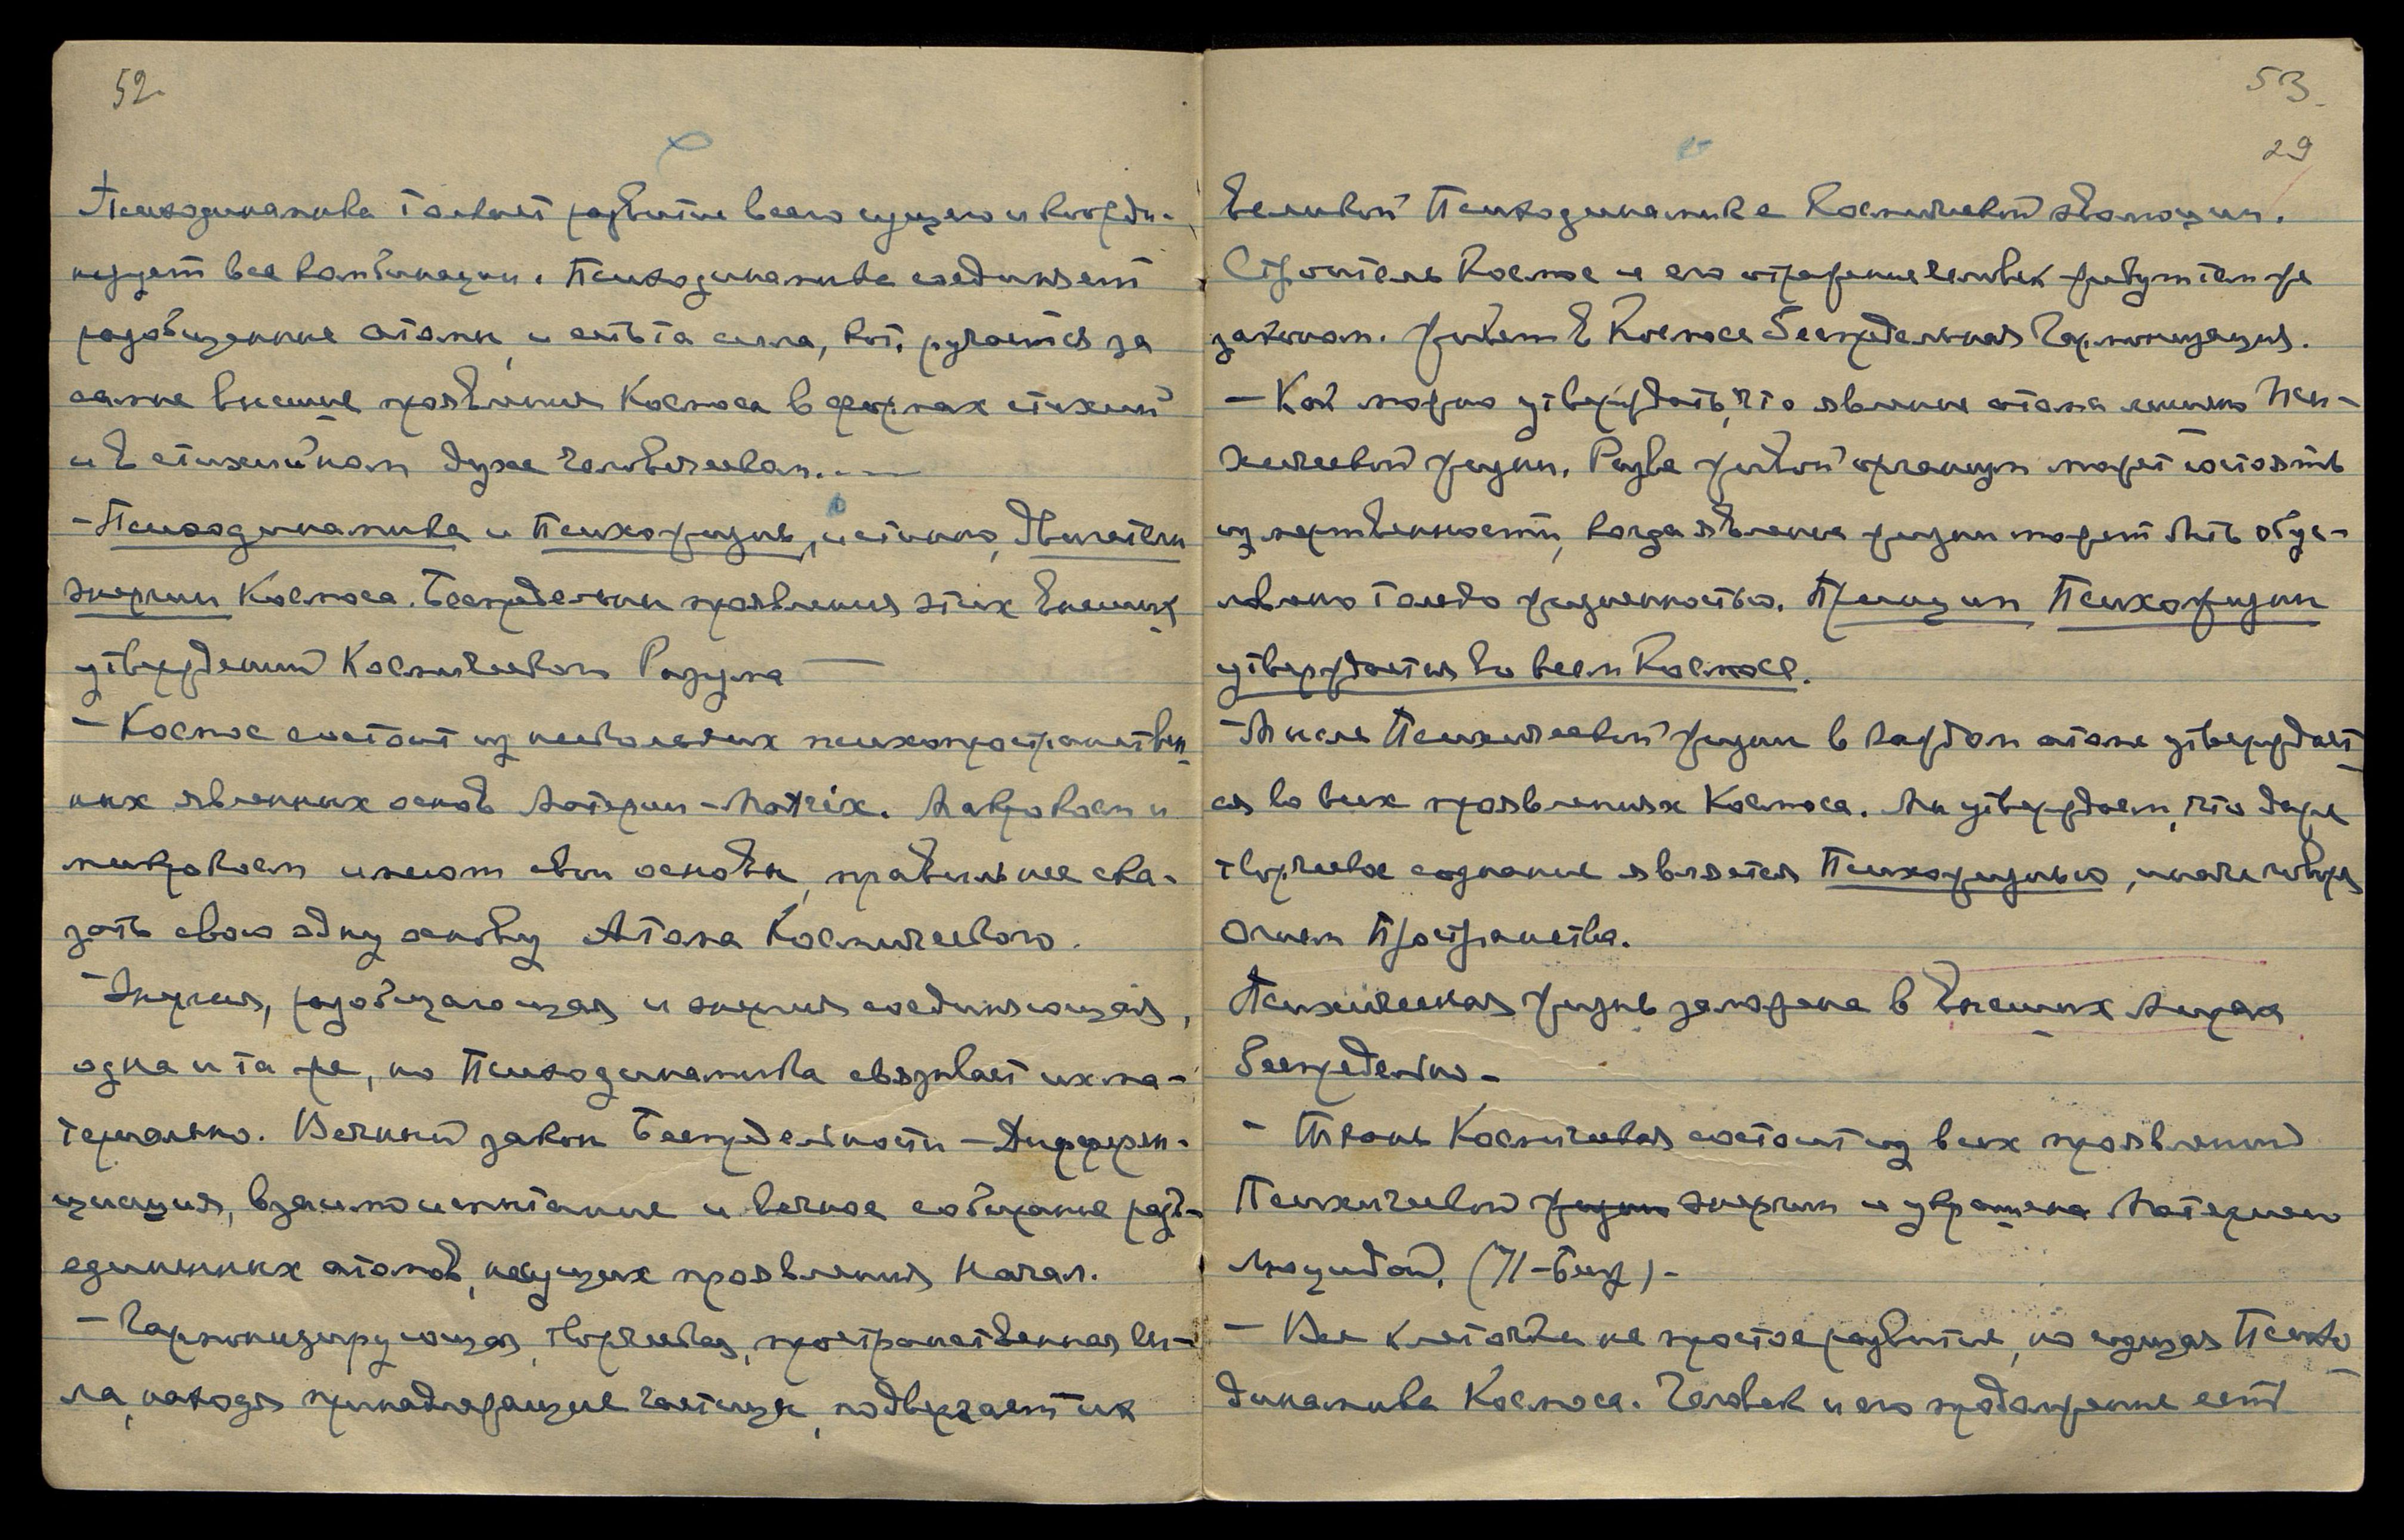 52.
Психодинамика толкает развитие всего сущего и коорди-
нирует все комбинации. Психодинамика соединяет
разобщенные атомы, и есть та сила, кот. ручается за
самые высшие проявления Космоса в формах стихий
и в стихийном духе человеческом.——
-Психодинамика и Психожизнь, истинно, Двигатели
энергии Космоса. Беспредельны проявления этих высших
утверждений Космического Разума —
- Космос состоит из нескольких психопространствен-
ных явленных основ Материи-Matrix. Макрокосм и
микрокосм имеют свои основы, правильнее ска-
зать свою одну основу Атома Космического.
- Энергия, разобщающая и энергия соединяющая,
одна и та же, но Психодинамика связывает их ма-
териально. Вечный закон Беспредельности - Дифферен-
циация, взаимоиспытание и вечное собирание разъ-
единенных атомов, несущих проявления Начал.
- Гармонизирующая, творческая, пространственная си-
ла, находя принадлежащие частицы, подвергает их
53.
29
Великой Психодинамике Космической эволюции.
Строитель Космос и его отражение человек живут тем же
законом. Живет в Космосе Беспредельная Гармонизация.
- Как можно утверждать, что явление атома лишено Пси-
хической жизни. Разве живой организм может состоять
из мертвенности, когда явление жизни может быть обус-
ловлено только жизненностью. Принцип Психожизни
утверждается во всем Космосе.
- Мысль Психической жизни в каждом атоме утверждает-
ся во всех проявлениях Космоса. Мы утверждаем, что даже
творческое сознание является Психожизнью, иначе говоря
Огнем Пространства.
Психическая жизнь заложена в Высших Мирах
беспредельно -
- Ткань Космическая состоит из всех проявлений
Психической жизни энергии и украшена Материею
Люцидой. (71-Бесп) -
- Все клеточки не простое развитие, но сущая Психо-
динамика Космоса. Человек и его продолжение есть